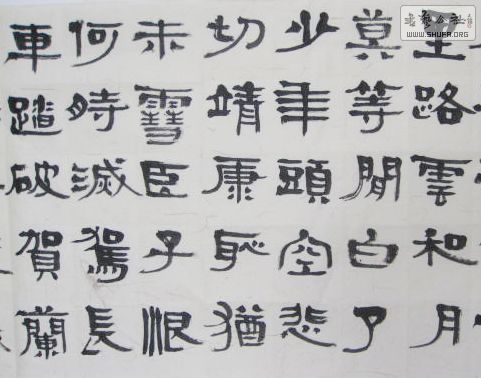 里路雲和月
莫等閒白了
少年頭空悲
切靖康恥猶
未雪臣子恨
何時滅駕長
車踏破賀蘭
WWW.SHUFA.ORG